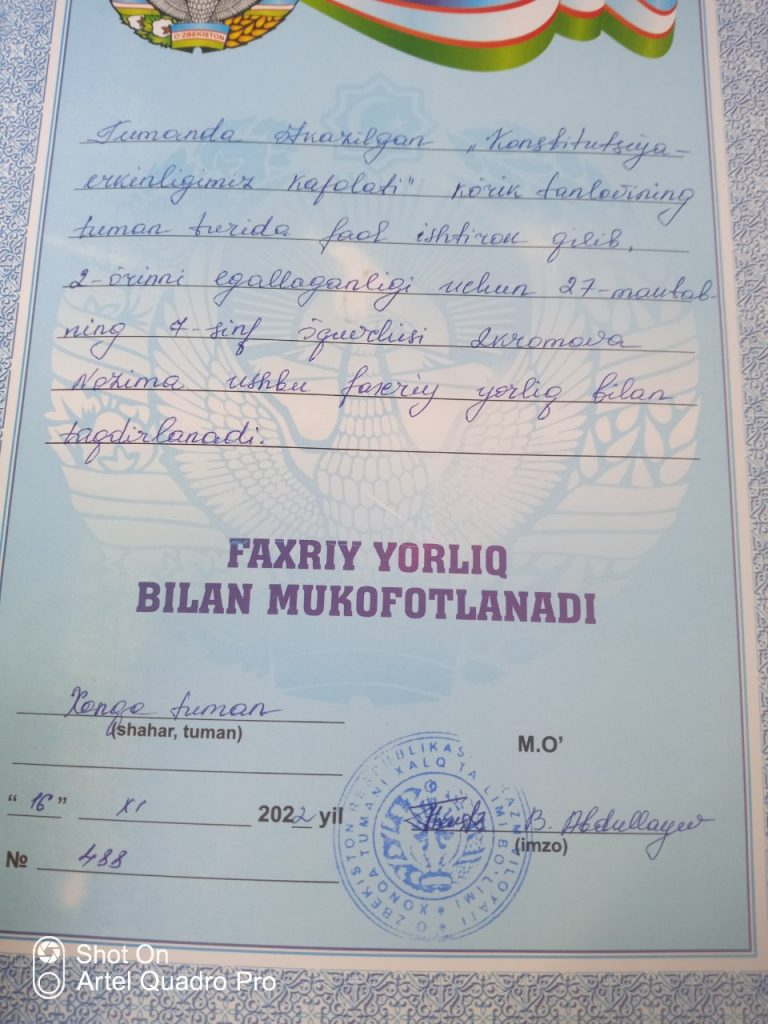 O'ZBEKISTON
Tumanda o'tkazilgan „Konstitutsiya-
erkinligimiz kafolati" ko'rik tanlovining
tuman turida faol ishtirok qilib,
2-o'rinni egallaganligi uchun 27-maktab-
ning 7-sinf o'quvchisi Ikromova
Nozima ushbu faxriy yorliq bilan
taqdirlanadi.
FAXRIY YORLIQ
BILAN MUKOFOTLANADI
Xonqa tuman
(shahar, tuman)
M.O'
“ 16 ” XI 2022 yil
B. Abdullayev
(imzo)
№ 488
O'ZBEKISTON RESPUBLIKASI XORAZM VILOYATI
XONQA TUMANI XALQ TA'LIMI BO'LIMI
Shot On
Artel Quadro Pro